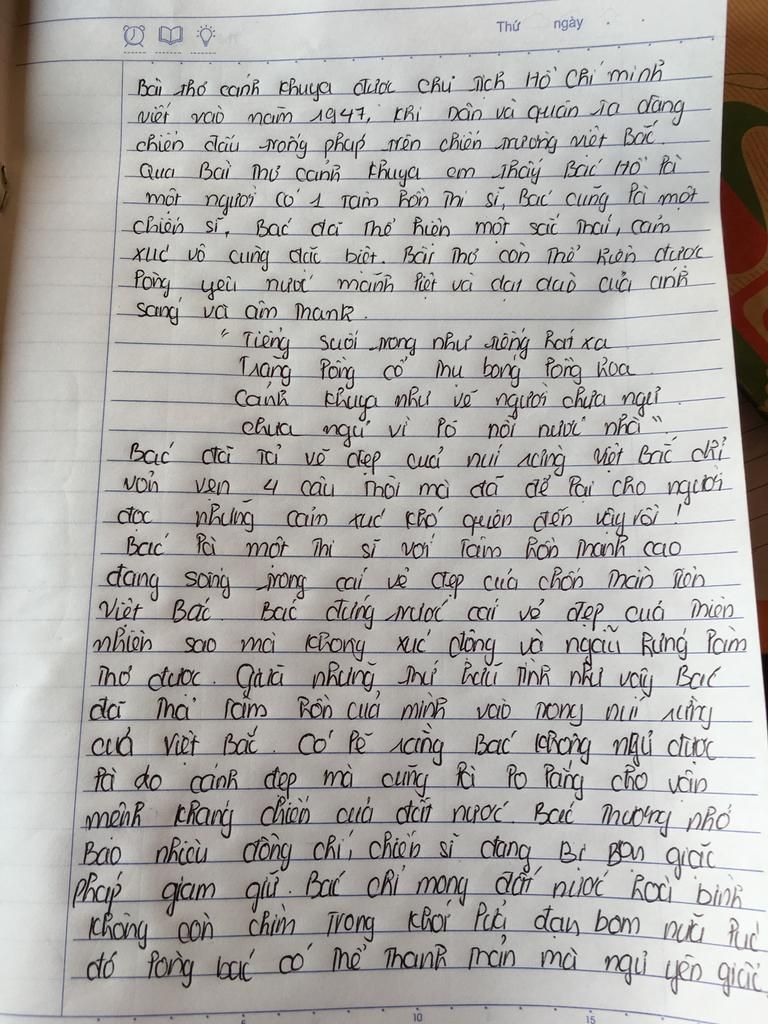 Thứ ngày
Bài thơ cảnh khuya được chủ tịch Hồ Chí minh
viết vào năm 1947, khi dân và quân ta đang
chiến đấu trong pháp trên chiến trường việt Bắc.
Qua Bài Thơ cảnh khuya em thấy Bác Hồ là
một người có 1 tâm hồn thi sĩ, Bác cũng là một
chiến sĩ, Bác đã thể hiện một sắc thái, cảm
xúc vô cùng đặc biệt. Bài thơ còn thể hiện được
lòng yêu nước mãnh liệt và dạt dào của ánh
sáng và âm thanh.
" Tiếng suối trong như tiếng hát xa
Trăng lồng cổ thụ bóng lồng hoa
Cảnh khuya như vẽ người chưa ngủ
chưa ngủ vì lo nỗi nước nhà".
Bác đã tả vẻ đẹp của núi rừng việt Bắc chỉ
vỏn vẹn 4 câu thôi mà đã để lại cho người
đọc những cảm xúc khó quên đến vậy rồi!
Bác là một thi sĩ với tâm hồn thanh cao
đang sống trong cái vẻ đẹp của chốn thần tiên
Việt Bắc. Bác đứng trước cái vẻ đẹp của thiên
nhiên sao mà không xúc động và ngẫu hứng làm
thơ được. Giữa những thứ hữu tình như vậy Bác
đã thả tâm hồn của mình vào trong núi rừng
của việt Bắc. Có lẽ rằng Bác không ngủ được
là do cảnh đẹp mà cũng là lo lắng cho vận
mệnh kháng chiến của đất nước. Bác thương nhớ
Bao nhiêu đồng chí, chiến sĩ đang Bị Bọn giặc
pháp giam giữ. Bác chỉ mong đất nước hoà bình
không còn chìm trong khói lửa đạn bom nữa lúc
đó lòng bác có thể thanh thản mà ngủ yên giấc
5 10 15